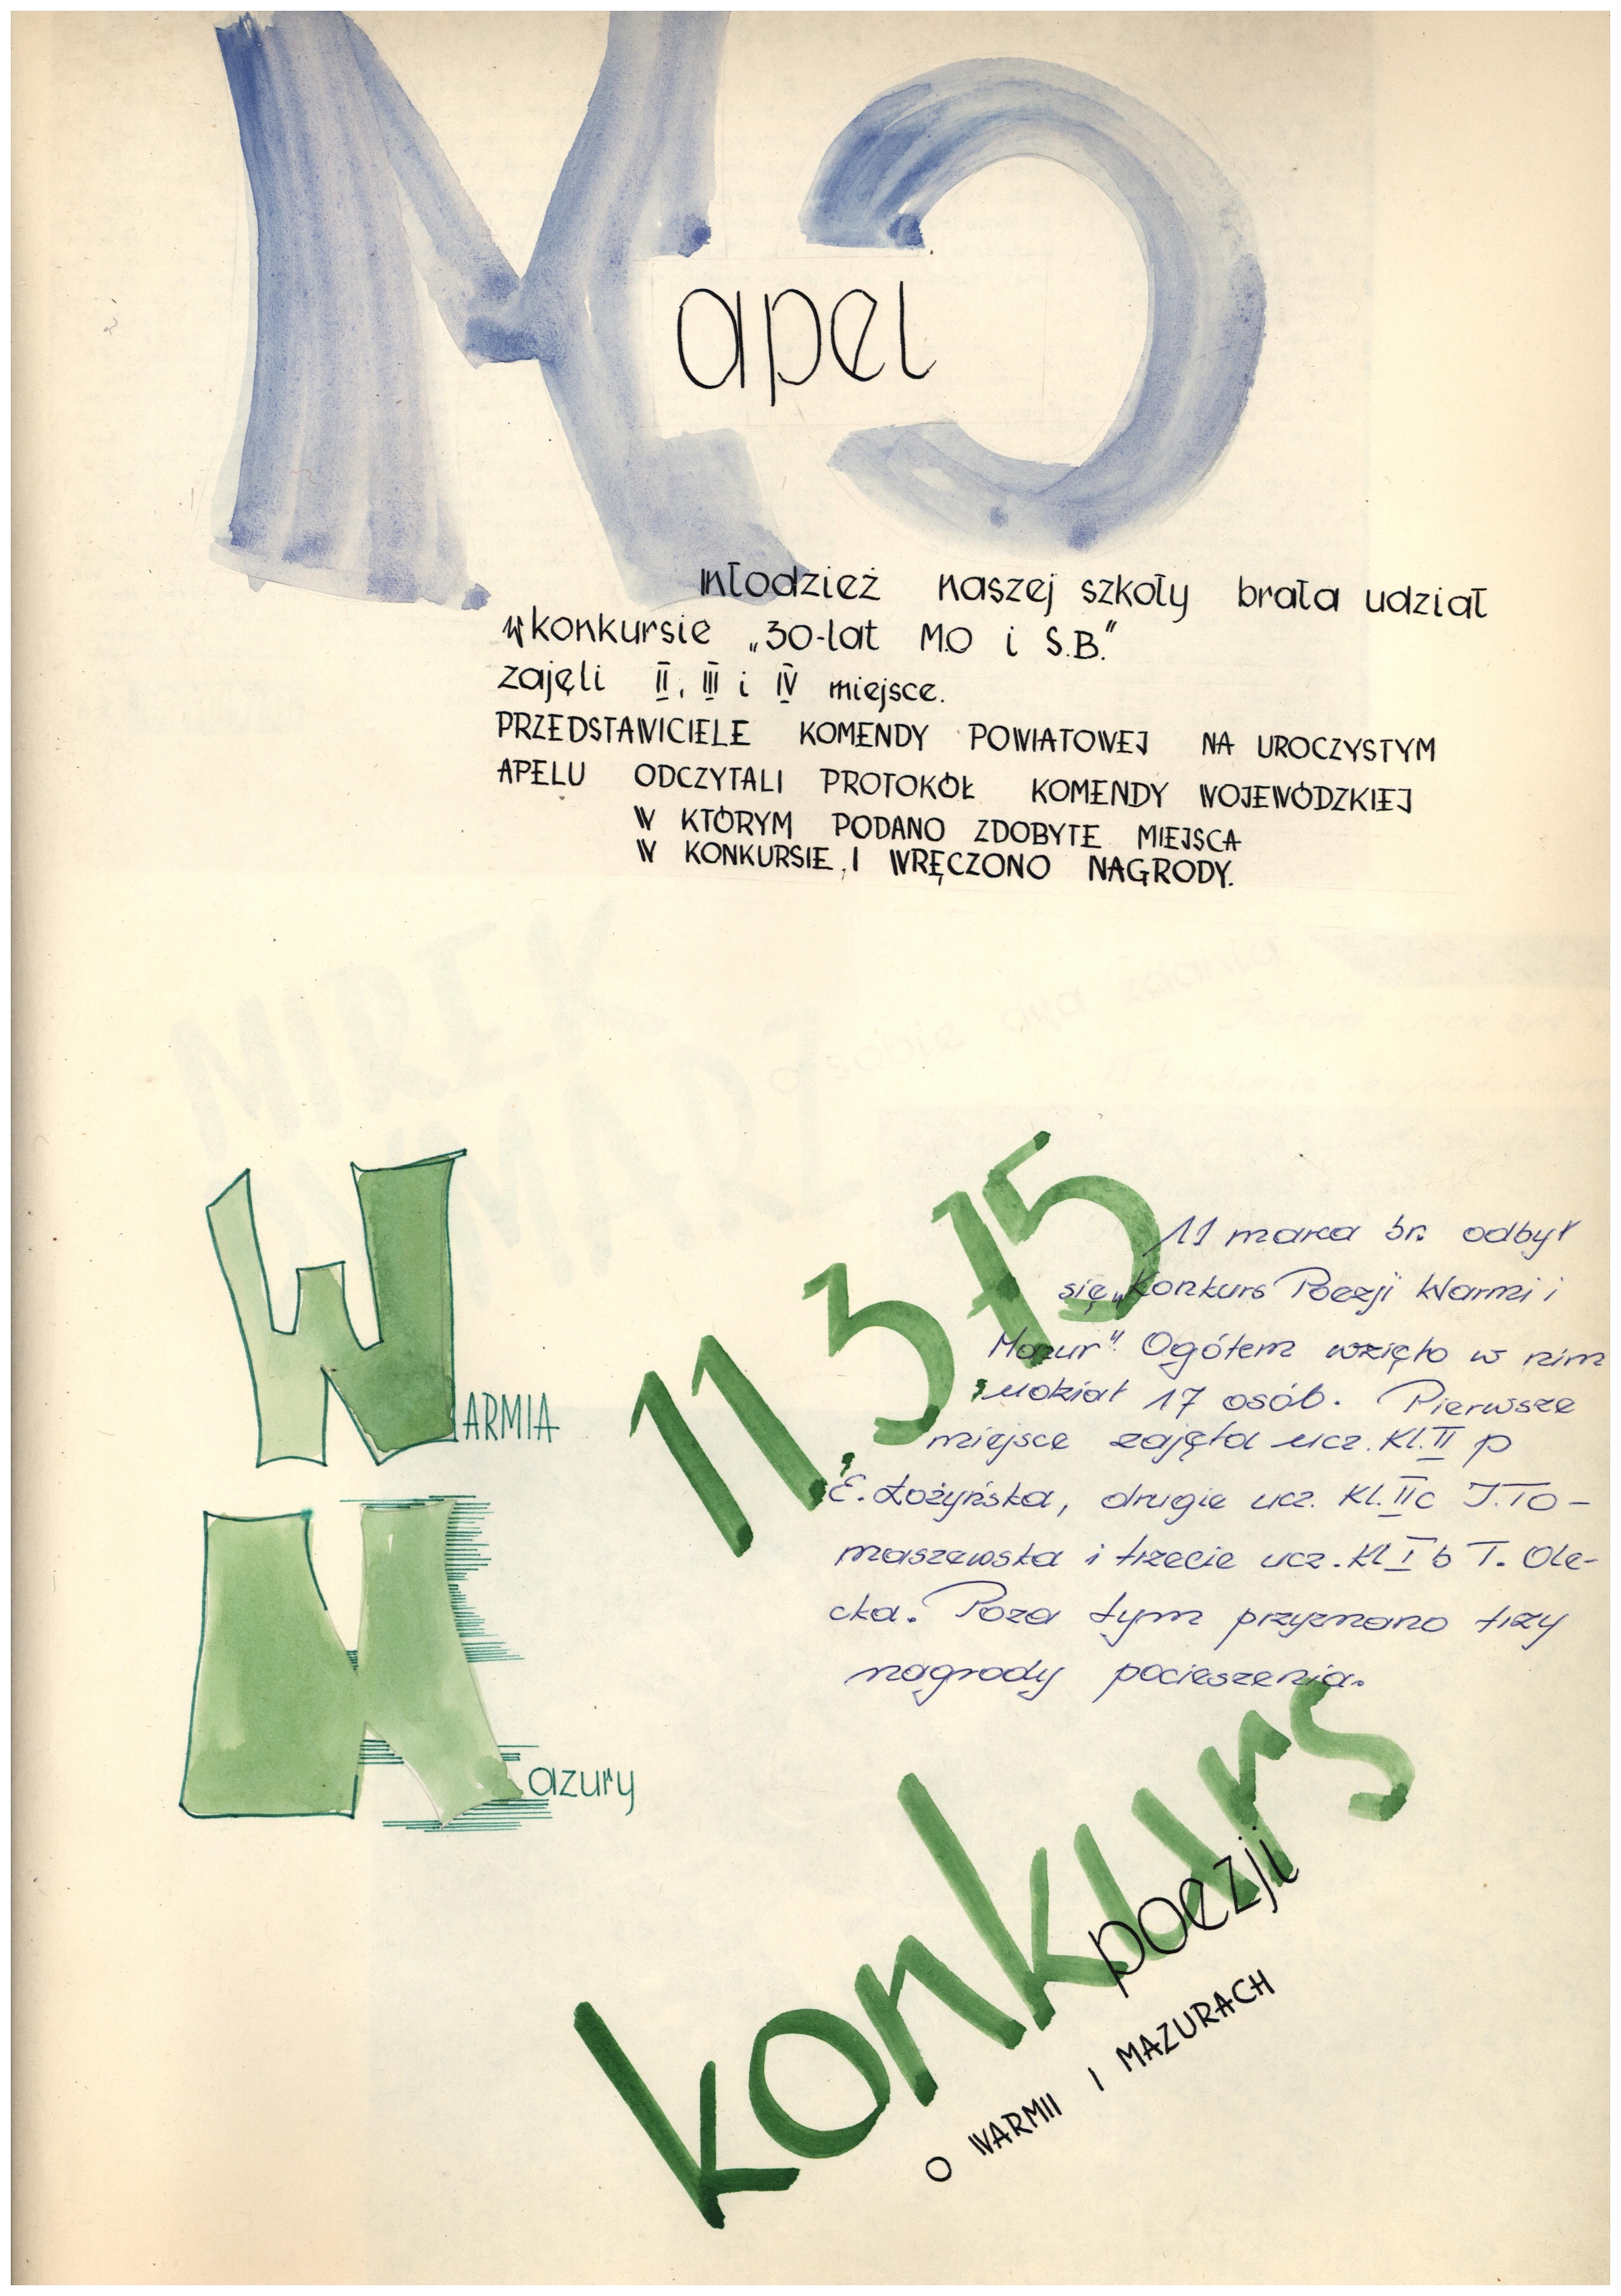 MO
apel
młodzież naszej szkoły brała udział
w konkursie „30-lat M.O i S.B."
zajęli II, III i IV miejsce.
PRZEDSTAWICIELE KOMENDY POWIATOWEJ NA UROCZYSTYM
APELU ODCZYTALI PROTOKÓŁ KOMENDY WOJEWÓDZKIEJ
W KTÓRYM PODANO ZDOBYTE MIEJSCA
W KONKURSIE, I WRĘCZONO NAGRODY.
WARMIA
Mazury
11.3.75
11 marca br. odbył
się „Konkurs Poezji Warmi i
Mazur" Ogółem wzięło w nim
udział 17 osób. Pierwsze
miejsce zajęła ucz. Kl. II p
E. Łożyńska, drugie ucz. Kl. II c J. To-
maszewska i trzecie ucz. Kl I b T. Ole-
cka. Poza tym przyznano trzy
nagrody pocieszenia.
konkurs
poezji
O WARMII I MAZURACH